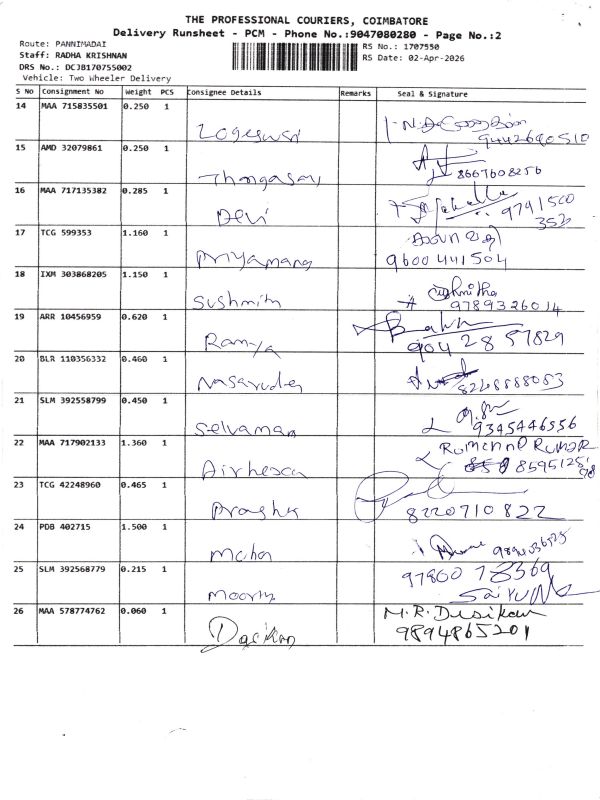 THE PROFESSIONAL COURIERS, COIMBATORE
Delivery Runsheet - PCM - Phone No.:9047080280 - Page No.:2
Route: PANNIMADAI
RS No.: 1707550
Staff: RADHA KRISHNAN
RS Date: 02-Apr-2026
DRS No.: DCJB170755002
Vehicle: Two Wheeler Delivery
S No Consignment No Weight PCS Consignee Details Remarks Seal & Signature
14 MAA 715835501 0.250 1
Logeswari 9442640510
15 AMD 32079861 0.250 1
Thangasamy 8667608256
16 MAA 717135382 0.285 1
Devi 9791500
352
17 TCG 599353 1.160 1
Priyamana 9600441504
18 IXM 303868205 1.150 1
Sushmith Sushmitha
9789326014
19 ARR 10456959 0.620 1
Ramya 9042857829
20 BLR 110356332 0.460 1
Nasarudee 8248888083
21 SLM 392558799 0.450 1
Selvaman 9345446556
22 MAA 717902133 1.360 1
KUMAR
859512598
23 TCG 42248960 0.465 1
8220710822
24 PDB 402715 1.500 1
25 SLM 392568779 0.215 1
Moorthy 9780078369
26 MAA 578774762 0.060 1
M.R. Desikan
9894865201